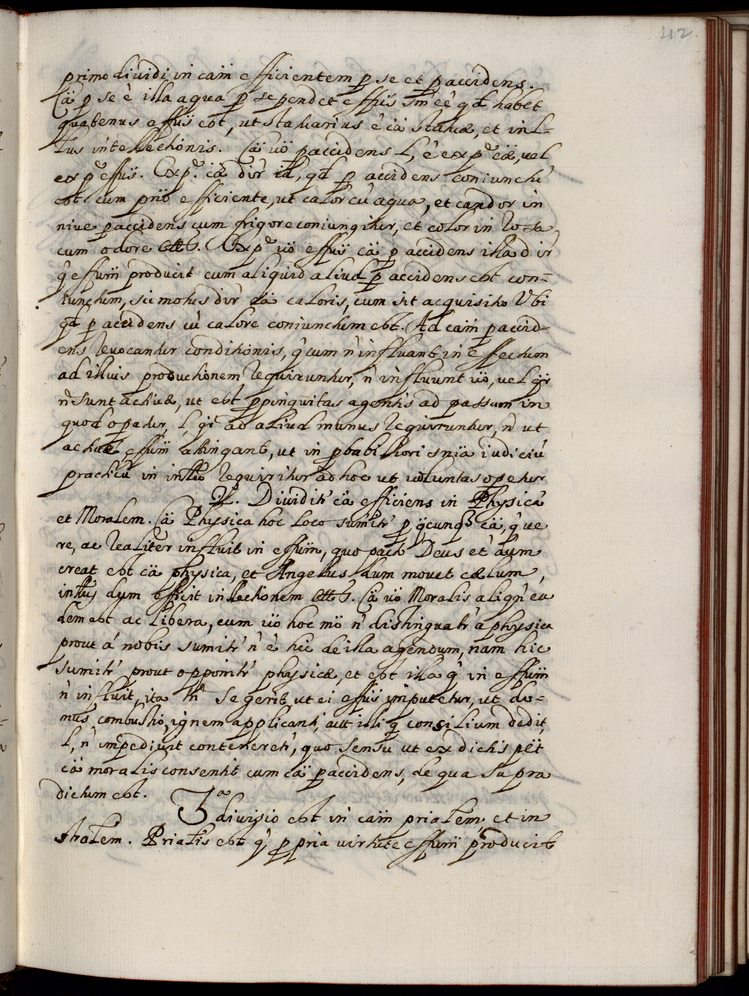 42
primo dividi in cam̃ efficientem p se et p accidens.
Cã p se ẽ illa a qua p se pendet effũs sm̃ eẽ qd̃ habet
quatenus effũs est, ut statuarius ẽ cã statuæ, et intel-
tus intellectionis. Cã vo p accidens l, ẽ ex pᵉ cæ, vel
ex pᵉ effũs. Ex pᵉ cæ dir̃ id, qd̃ p accidens coniuncti
est cum prio efficiente, ut calor cũ aqua, et candor in
nive p accidens cum frigore coniungitur, et color in
cum odore ettc. Ex pᵉ vo effũs cã p accidens illa dir̃
q̃ effum̃ producit cum aliquid aliud p accidens est con-
iunctum, sic motus dir̃ cã caloris, cum sit acquisitio Ubi
qd̃ p accidens cũ calore coniunctum est. Ad cam̃ p accid-
ens revocantur conditionis, q̃ cum ñ influant in effectum
ad illius productionem requiruntur, ñ influunt vo, vel qr̃
ñ sunt activæ, ut est ppinquitas agentis ad passum in
quod opatur, l, qr̃ ad aliud munus requiruntur, ñ ut
active effum̃ attingant, ut in pbabiliori sñia iudiciũ
practicũ in inttu requiritur ad hoc ut voluntas opetur
2. Dividitr̃ cã efficiens in Physicã
et Moralem. Cã Physica hoc loco sumitr̃ p q̃cunq̃ cã, q̃ ve
re, ac realiter influit in effum̃, quo pacto Deus et aĩum
creat est cã physica, et Angelus dum movet cælum,
inttus dum efficit intellectionem ettc. Cã vo Moralis aliqñ ea
dem est ac libera, cum vo hoc mõ ñ distinguatr̃ a physica
prout á nobis sumitr̃ ñ ẽ hic de illa agendum, nam hic
sumitr̃ prout opponitr̃ physicæ, et est illa q̃ in effum̃
ñ influit, ita tñ se gerit, ut ei effũs imputetur, ut do-
mus combustio, ignem applicanti, aut illi q̃ consilium dedit,
l, ñ impedivit cont teneretr̃, quo sensu ut ex dictis pt̃et
cã moralis consentit cum cã p accidens, de qua supra
dictum est.
3.ª divisio est in cam̃ prialem et in
stralem. Prialis est q̃ p pria virtute effum̃ producit